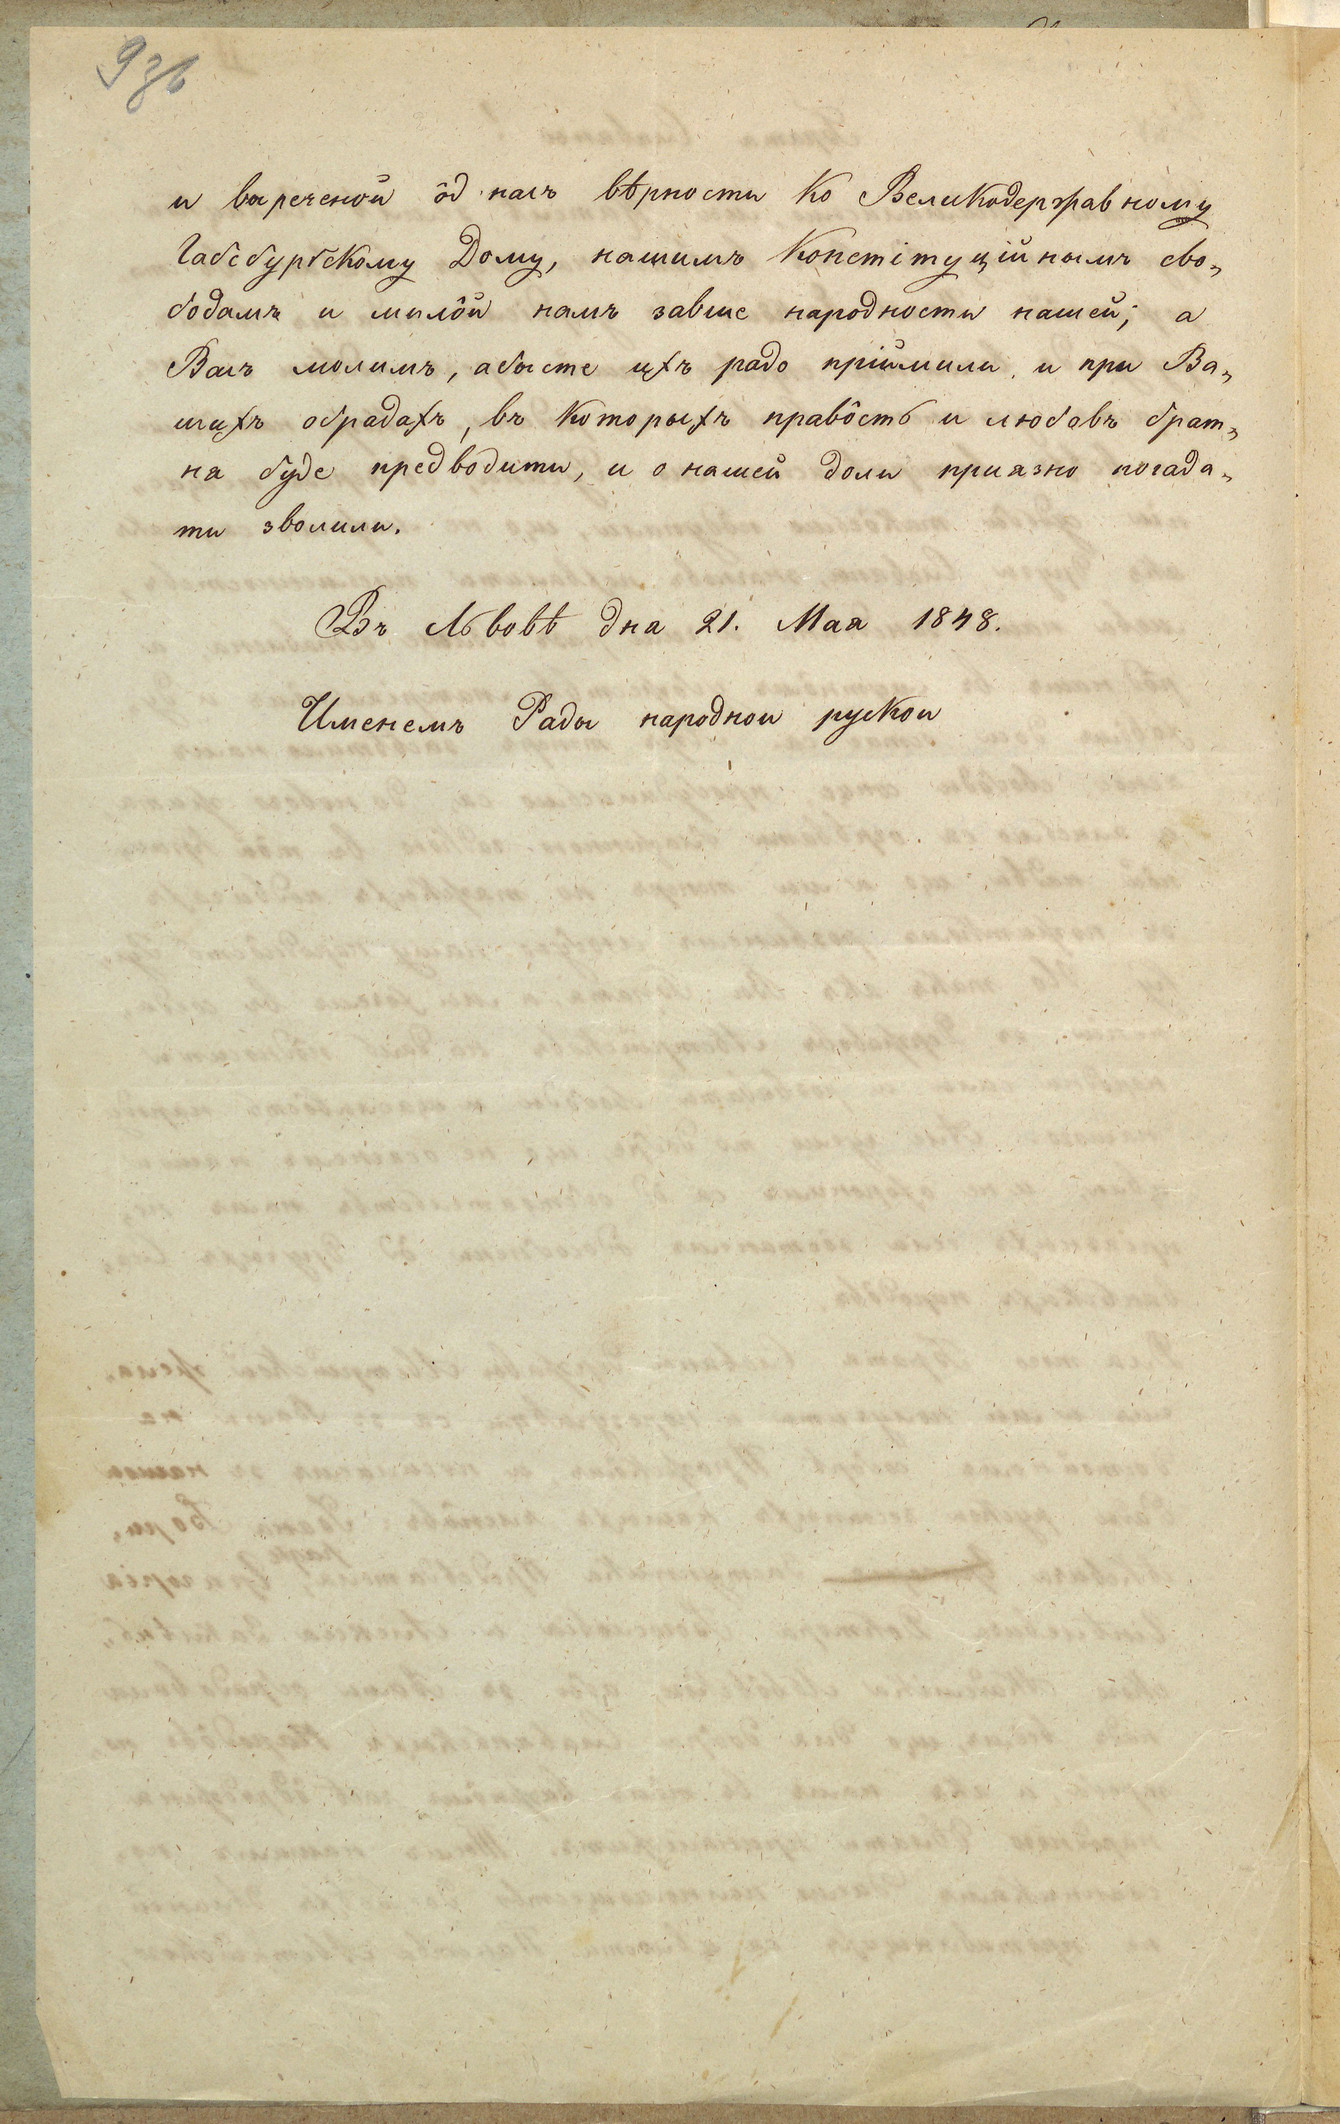 93b
и выреченой ôд насъ вѣрности ко Великодержавному
Габсбургскому Дому, нашимъ Констітуційнымъ сво„
бодамъ и милôй намъ завше народности нашей; а
Васъ молимъ, абысте ихъ радо пріймили, и при Ва„
шихъ обрадахъ, въ которыхъ правôсть и любовъ брат„
на буде предводити, и о нашей доли приазно погада„
ти зволили.
Въ Львовѣ дна 21. Маа 1848.
Именемъ Рады народнои рускои